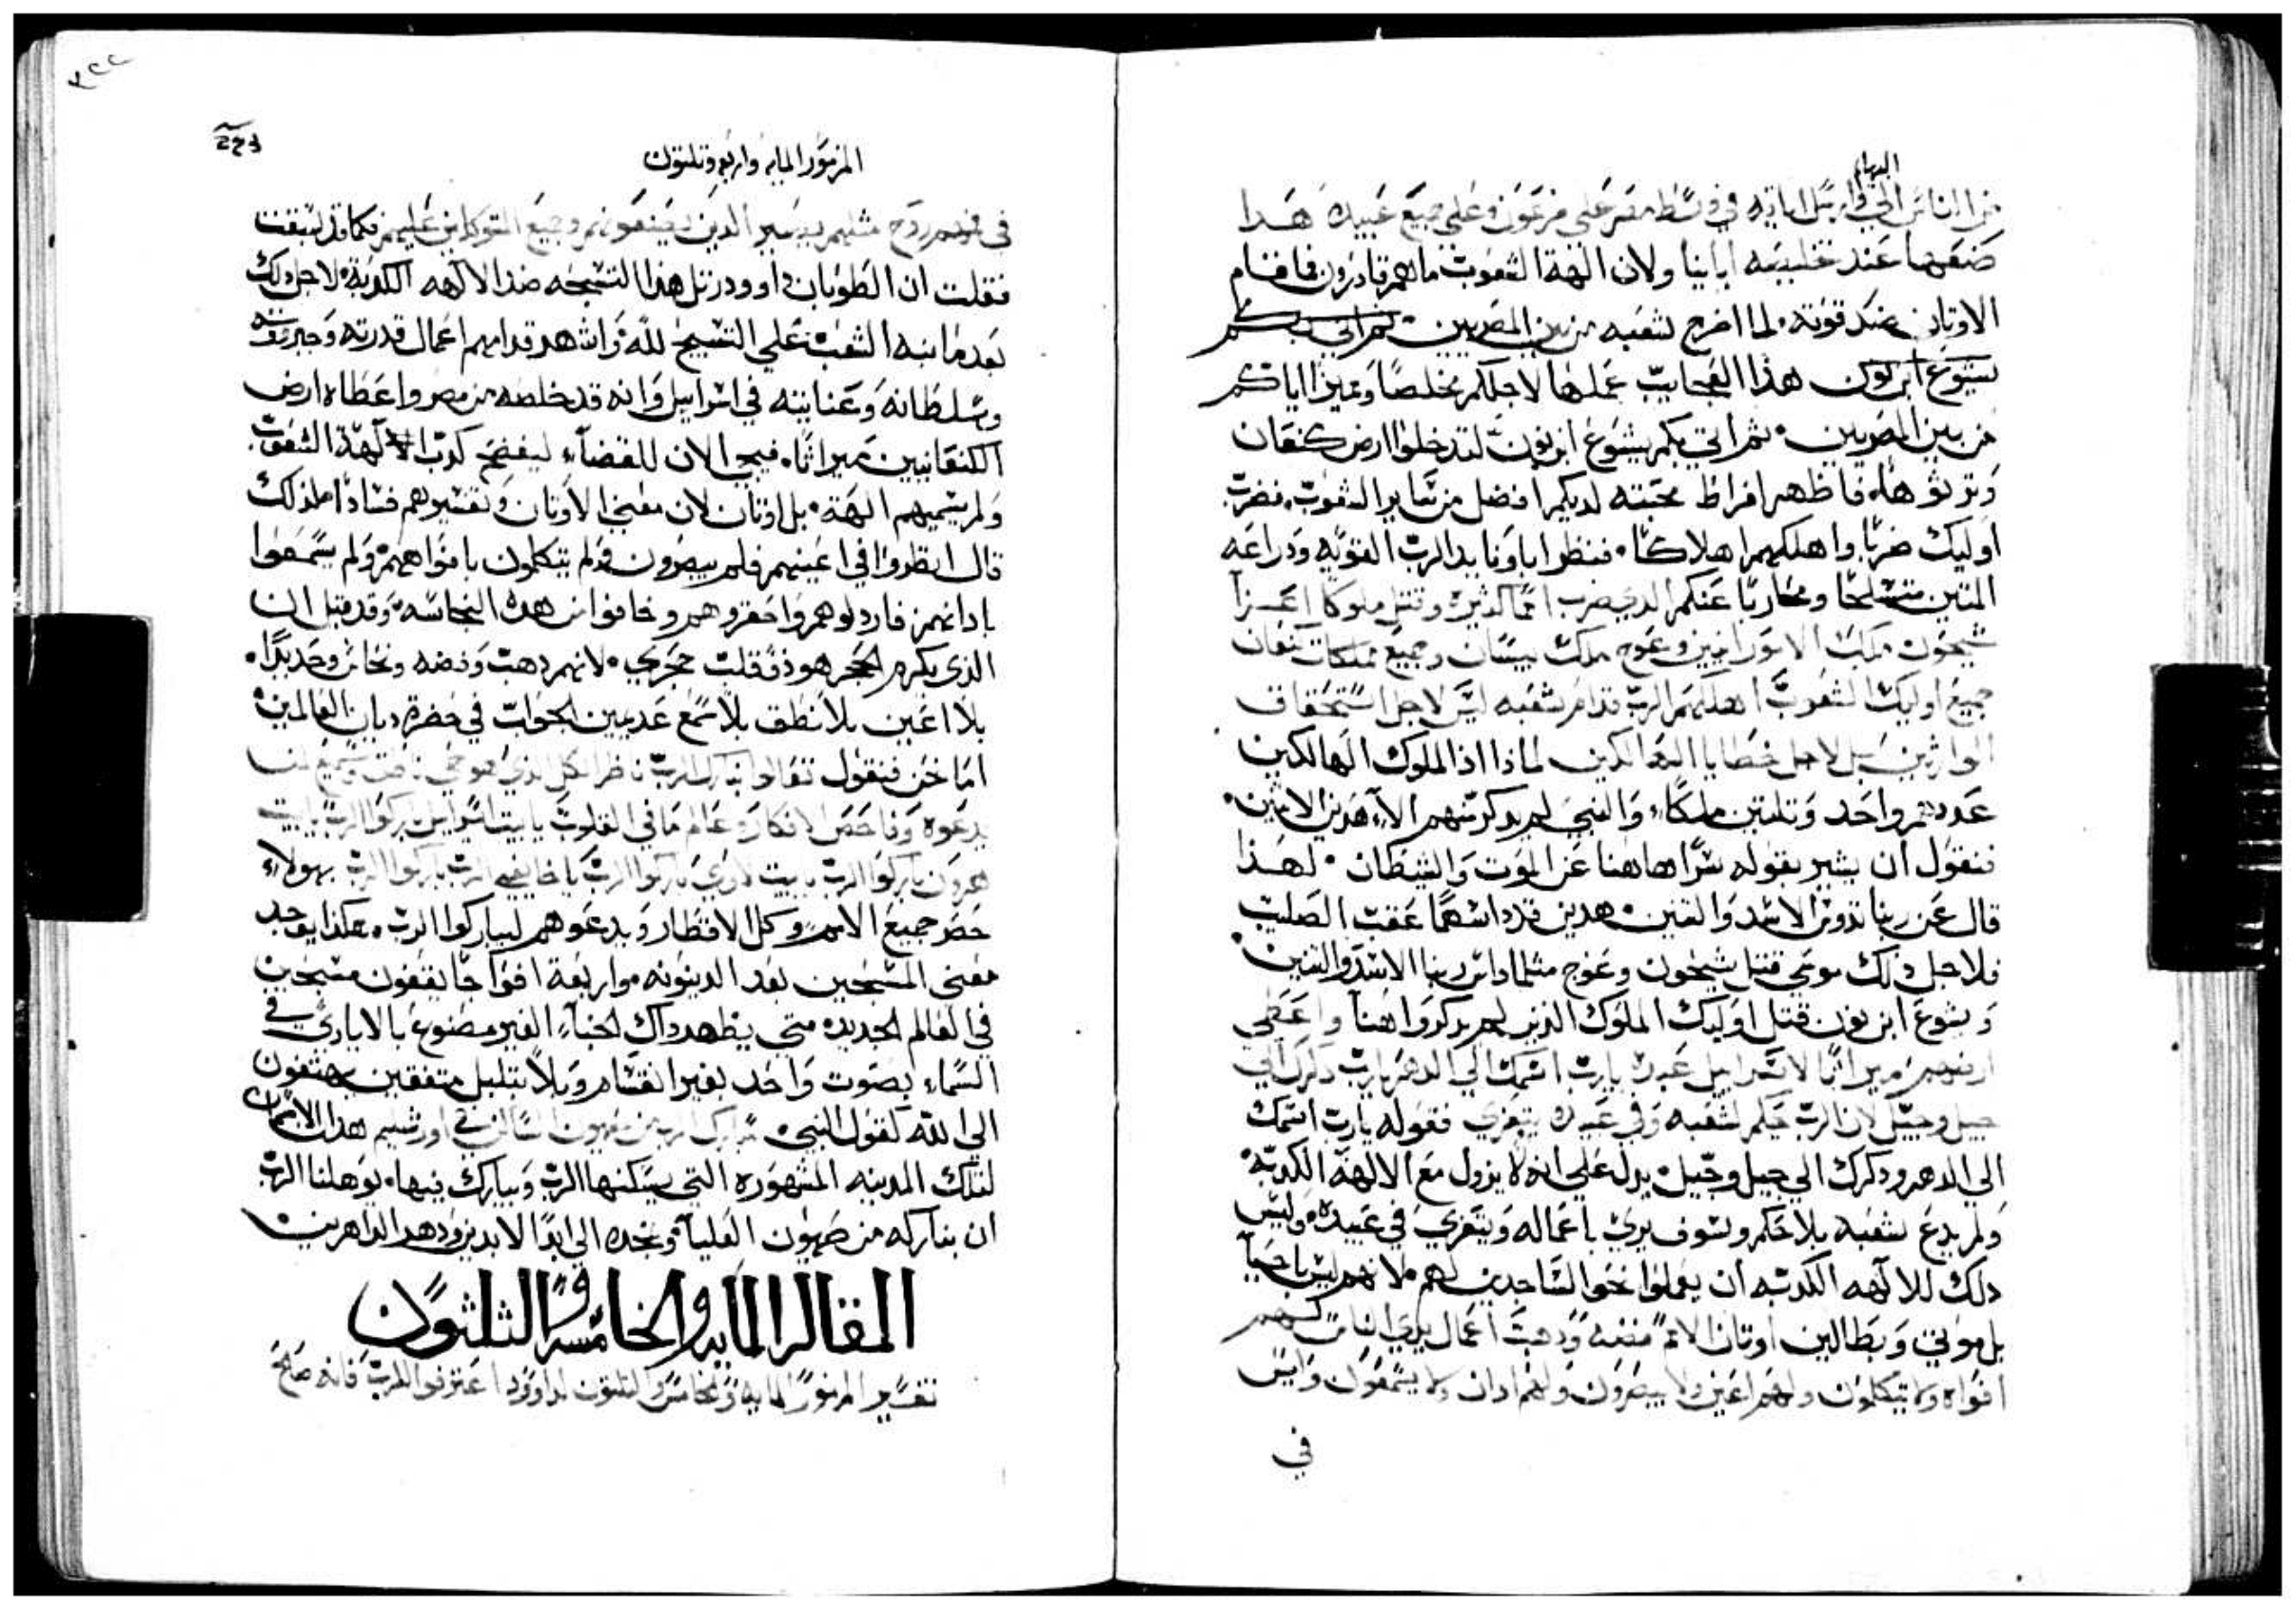 البهايم
من الناس الي وارسل اياته في وسط مصر علي فرعون وعلي جميع عبيده هدا
ضعفها عند تخليصه ابانيا ولان الهة الشعوب ماهم قادرون فاقام
الاوتان عند قوته لما اخرج لشعبه من بين المصريين ثم اتي بكم
يشوع ابن نون هذا العجايب عملها لاجلكم مخلصًا ومميزا اياكم
من بين المصريين ثم اتي بكم يشوع ابن نون لتدخلوا ارض كنعان
وترثوها فاظهر افراط محبته لديكم افضل من ساير الشعوب فضرب
اوليك ضربًا واهلكهم اهلاكًا فننظر اباونا يد الرب القويه ودراعه
المتين متسلحًا ومحاربًا عنكم الدي ضرب اممًا كثيرين وقتل ملوكًا اعزآ
شيحون ملك الامورانيين وعوج ملك بيسان وجميع مملكات كنعان
جميع اوليك الشعوب اهلكهم الرب قدام شعبه ليس لاجل استحقاق
الوارثين بل لاجل خطايا الهالكين لماذا اذ الملوك الهالكين
عددهم واحد وتلتين ملكًا والنبي لم يدكر منهم الا هدين الاتنين
فنقول ان يشير بقوله سرًا هاهنا عن الموت والشيطان لهذا
قال عن ربنا تدوس الاسد والتنين هدين قد داسهما عقب الصليب
فلاجل دلك موسي قتل شيحون وعوج مثلما داس ربنا الاسد والتنين
ويشوع ابن نون قتل اوليك الملوك الذين لم يدكروا هنا واعطي
ارضهم ميراثًا لاسراييل عبده يارب اسمك الي الدهر يارب دكرك الي
جيل وجيل لان الرب يحكم لشعبه وفي عبيده يتعزي فقوله يارب اسمك
الي الدهر ودكرك الي جيل وجيل يدل علي انه لا يزول مع الالهة الكدبه
ولم يدع شعبه بلا حكم وسوف يري باعماله ويتعزي في عبيده وليس
دلك للالهه الكدبه ان يعملوا نحو الساجدين لهم لانهم ليس باحيآ
بل موتي وبطالين اوتان الامم فضه ودهب اعمال يدي الناس لهم
افواه ولا يتكلمون ولهم اعين ولا يبصرون ولهم ادان ولا يسمعون وليس
في
المزمور المايه واربعه وتلتون
في فمهم روح مثلهم يصير الدين يصنعونهم وجميع المتوكلين عليهم فكما قد سبقت
فقلت ان الطوبان داوود رتل هذا التسبحه ضد الالهه الكدبة لاجل دلك
بعدما نبه الشعب علي التسبيح لله واشهد قدامهم اعمال قدرته وجبروته
وسلطانه وعنايته في اسراييل وانه قد خلصه من مصر واعطاه ارض
الكنعانيين ميراثًا فيجي الان للقضآء ليفضح كدب الالهة الشعوب
ولم يسميهم الهة بل اوتان لان معني الاوتان وتفسيرهم فسادًا لدلك
قال انظروا في اعينهم فلم يبصرون ولم يتكلمون بافواههم ولم يسمعوا
بادانهم فاردلوهم واحقروهم وخافوا من هده النجاسه وقد قيل ان
الذي يكرم الحجر هو ذو قلب حجري لانهم دهب وفضه ونحاس وحديدًا
بلا اعين بلا نطق بلا سمع عديمين الجواب في حضرة ديان العالمين
اما نحن فنقول تعالوا نبارك الرب ناظر الكل الذي هو حي ناطق وسميع لمن
يدعوه وفاحص الافكار وعالم ما في القلوب يا بيت اسراييل باركوا الرب يا بيت
هرون باركوا الرب يا بيت لاوي باركوا الرب يا خايفي الرب باركوا الرب بهولاء
حضر جميع الامم وكل الاقطار ويدعوهم ليباركوا الرب هكذا يوجد
معني المسبحين بعد الدينونه واربعة افواجًا يقفون مسبحين
في العالم الجديد متي يظهر داك الخبآء الغير مصنوع بالايادي في
السماء بصوت واحد بغير انقسام وبلا تبلبل متفقين يهتفون
الي الله كقول النبي تبارك الرب من صهيون الساكن في اورشليم هدا الايمان
لتلك المدينه المشهوره التي يسكنها الرب ويبارك فيها يوهلنا الرب
ان نباركه من صهيون العليآ ونمجده الي ابد الابدين ودهر الداهرين
المقاله المايه والخامسه والثلثون
تفسير المزمور المايه والخامس والتلتون لداوود اعترفوا للرب فانه صالح